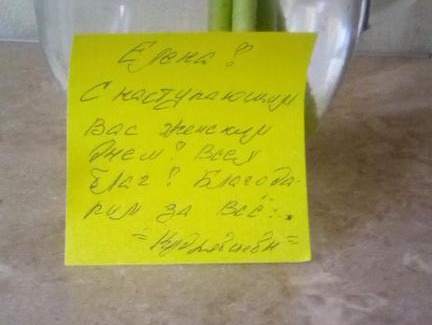 Елена!
С наступающим
Вас женским
днем! Всех
благ! Благода-
рим за всё!